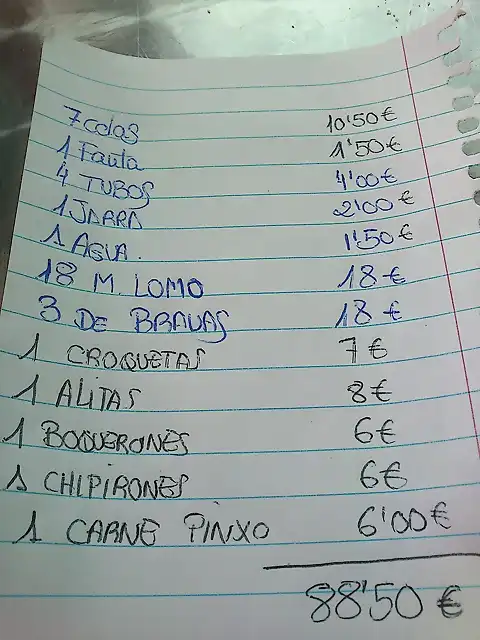 7 colas 10'50 €
1 Fanta 1'50 €
4 TUBOS 4'00 €
1 JARRA 2'00 €
1 AGUA. 1'50 €
18 M. LOMO 18 €
3 DE BRAVAS 18 €
1 CROQUETAS 7 €
1 ALITAS 8 €
1 BOQUERONES 6 €
1 CHIPIRONES 6 €
1 CARNE PINXO 6'00 €
88'50 €